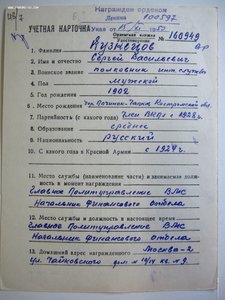 Награжден орденом
Ленина 100597
Указ от 1950
УЧЕТНАЯ КАРТОЧКА
Орденская книжка
Удостоверение № 160949
1. Фамилия Кузнецов
2. Имя и отчество Сергей Васильевич
3. Воинское звание полковник инт. службы
4. Пол мужской
5. Год рождения 1902
6. Место рождения
7. Партийность (с какого года) член ВКП(б) с 1928 г.
8. Образование среднее
9. Национальность русский
10. С какого года в Красной Армии с 1924 г.
11. Место службы (наименование части) и занимаемая должность
в момент награждения
Главное Политуправление ВМС
Начальник Финансового отдела
12. Место службы и должность в настоящее время
Главное Политуправление ВМС
Начальник Финансового отдела
13. Домашний адрес награжденного Москва-2
ул. Чайковского